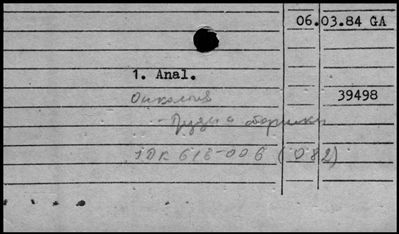 06.03.84 GA
1. Anal.
Онкология
39498
- Труды и сборники
УДК 616-006 (082)